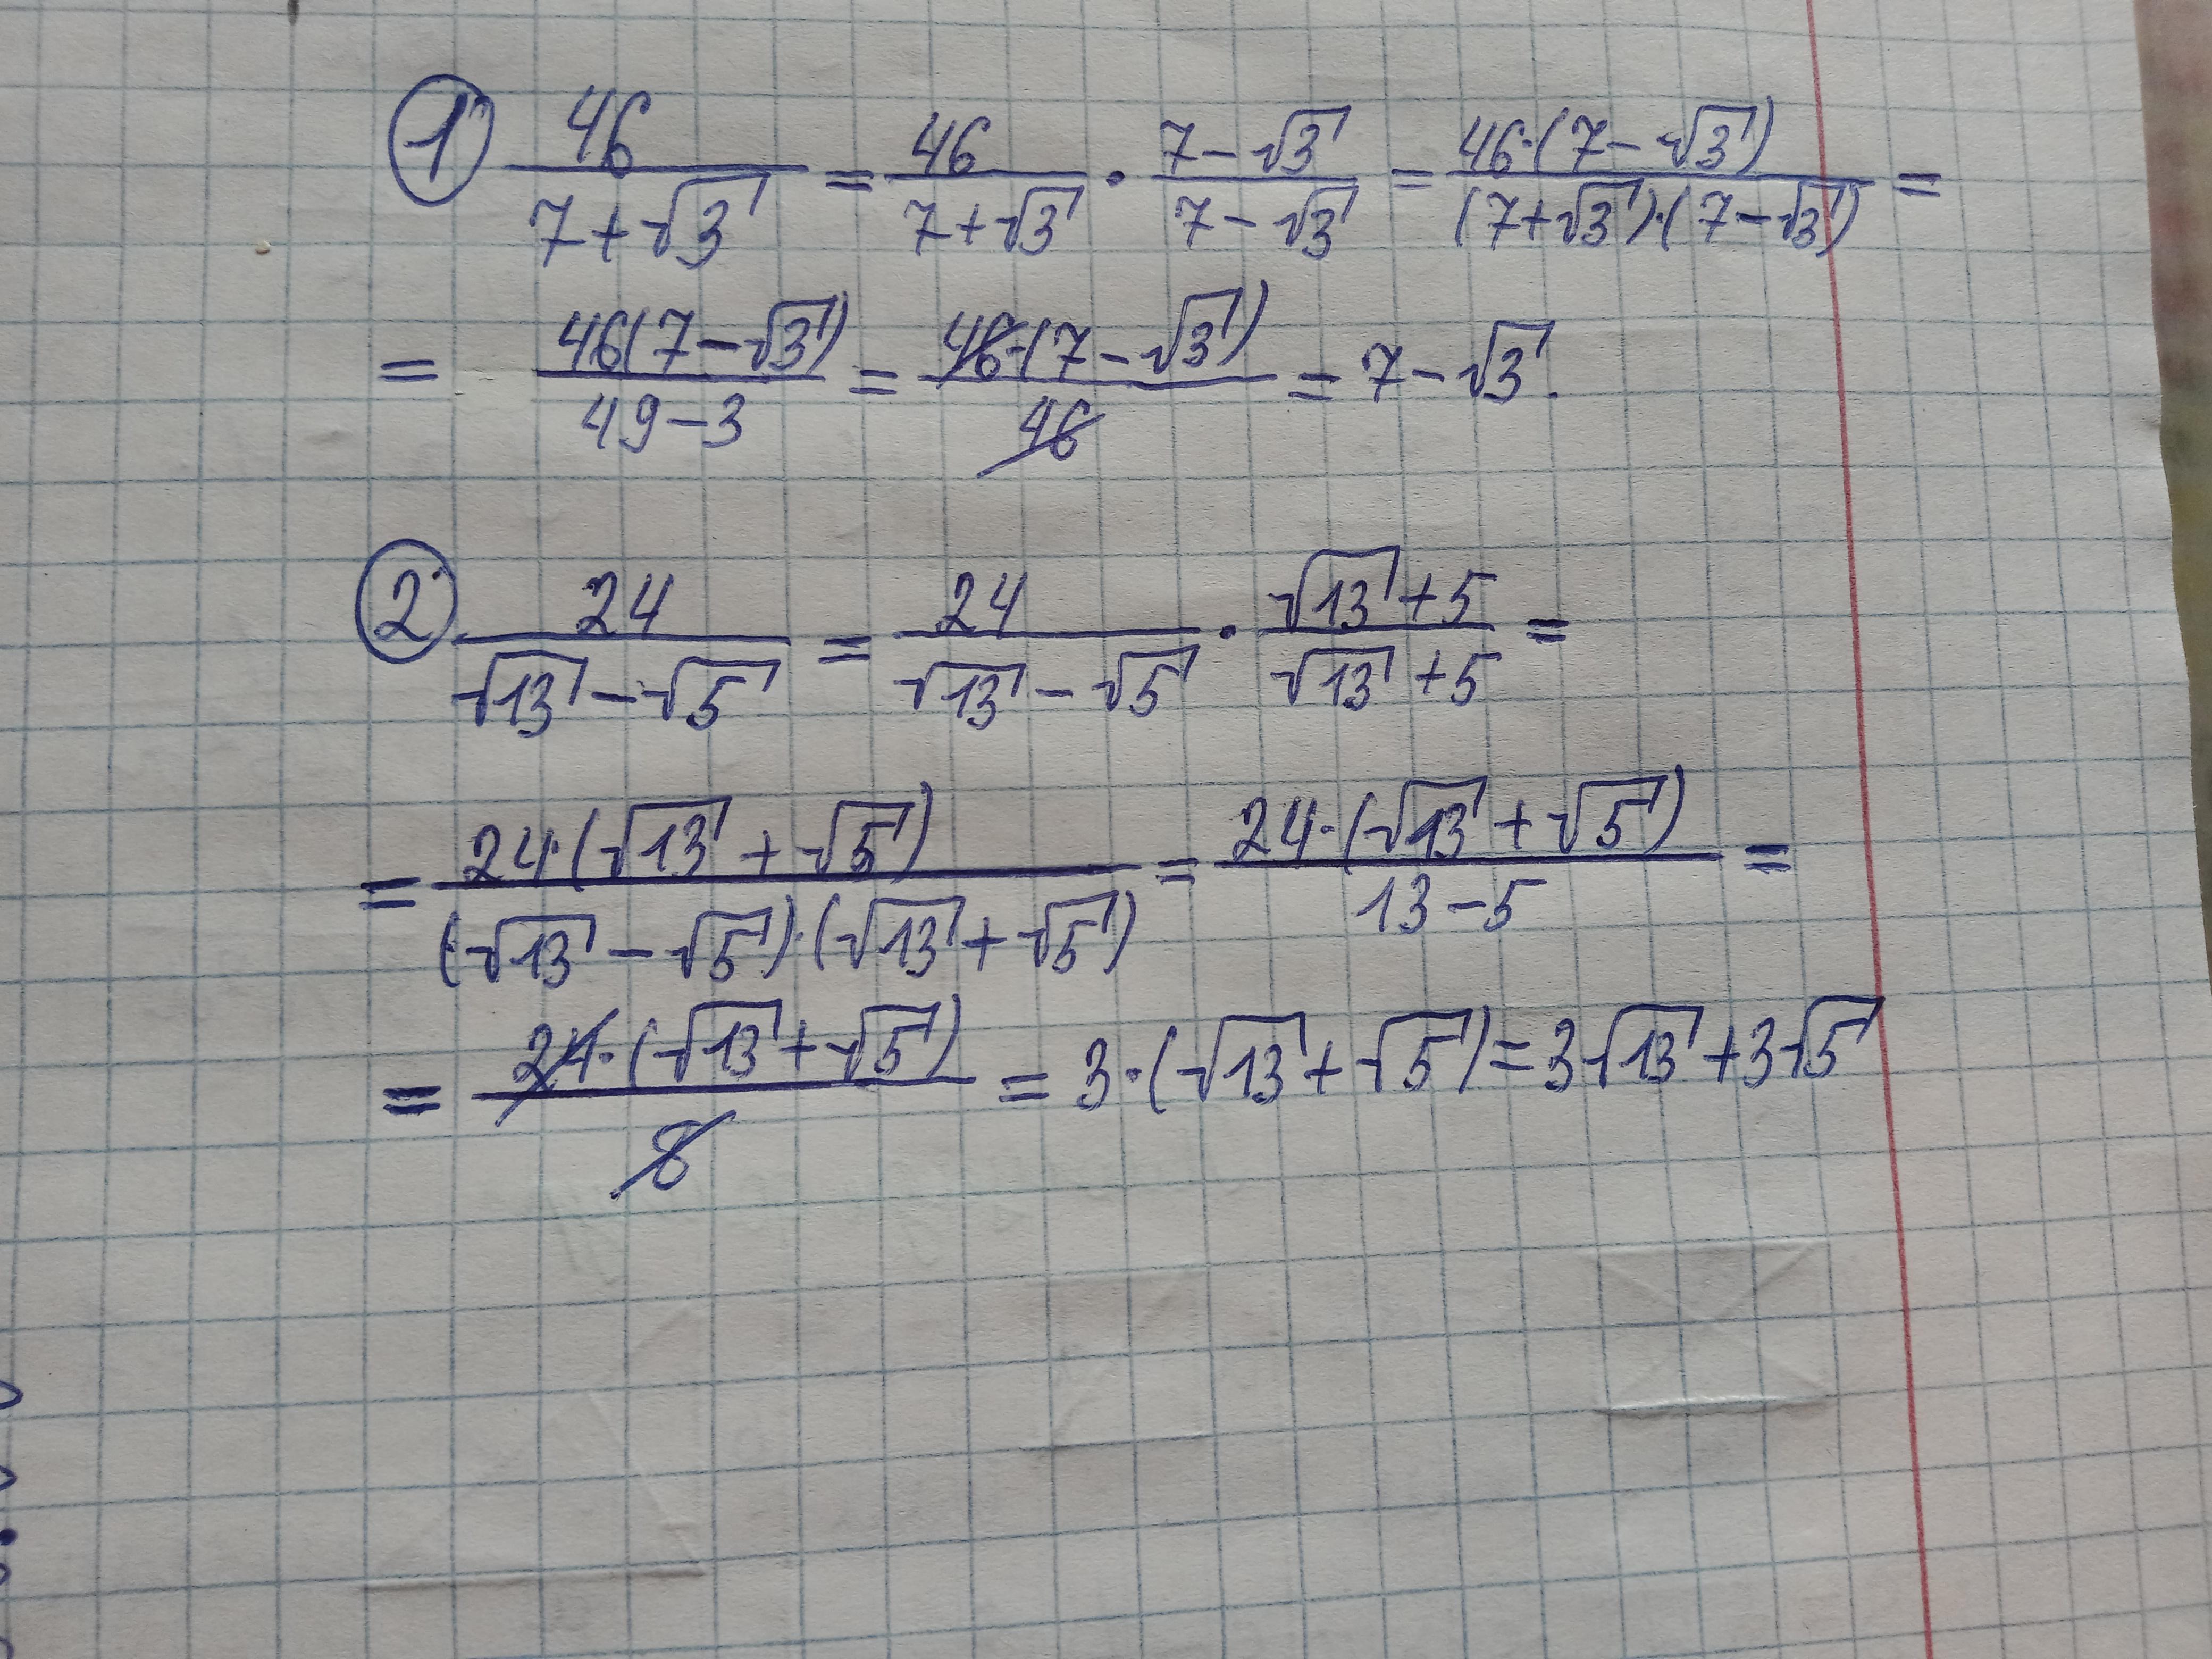 ① 46/(7+√3) = 46/(7+√3) · (7-√3)/(7-√3) = 46·(7-√3)/((7+√3)·(7-√3)) =
= 46(7-√3)/(49-3) = 46·(7-√3)/46 = 7-√3.
② 24/(√13-√5) = 24/(√13-√5) · (√13+5)/(√13+5) =
= 24·(√13+√5)/((√13-√5)·(√13+√5)) = 24·(√13+√5)/(13-5) =
= 24·(√13+√5)/8 = 3·(√13+√5) = 3√13+3√5